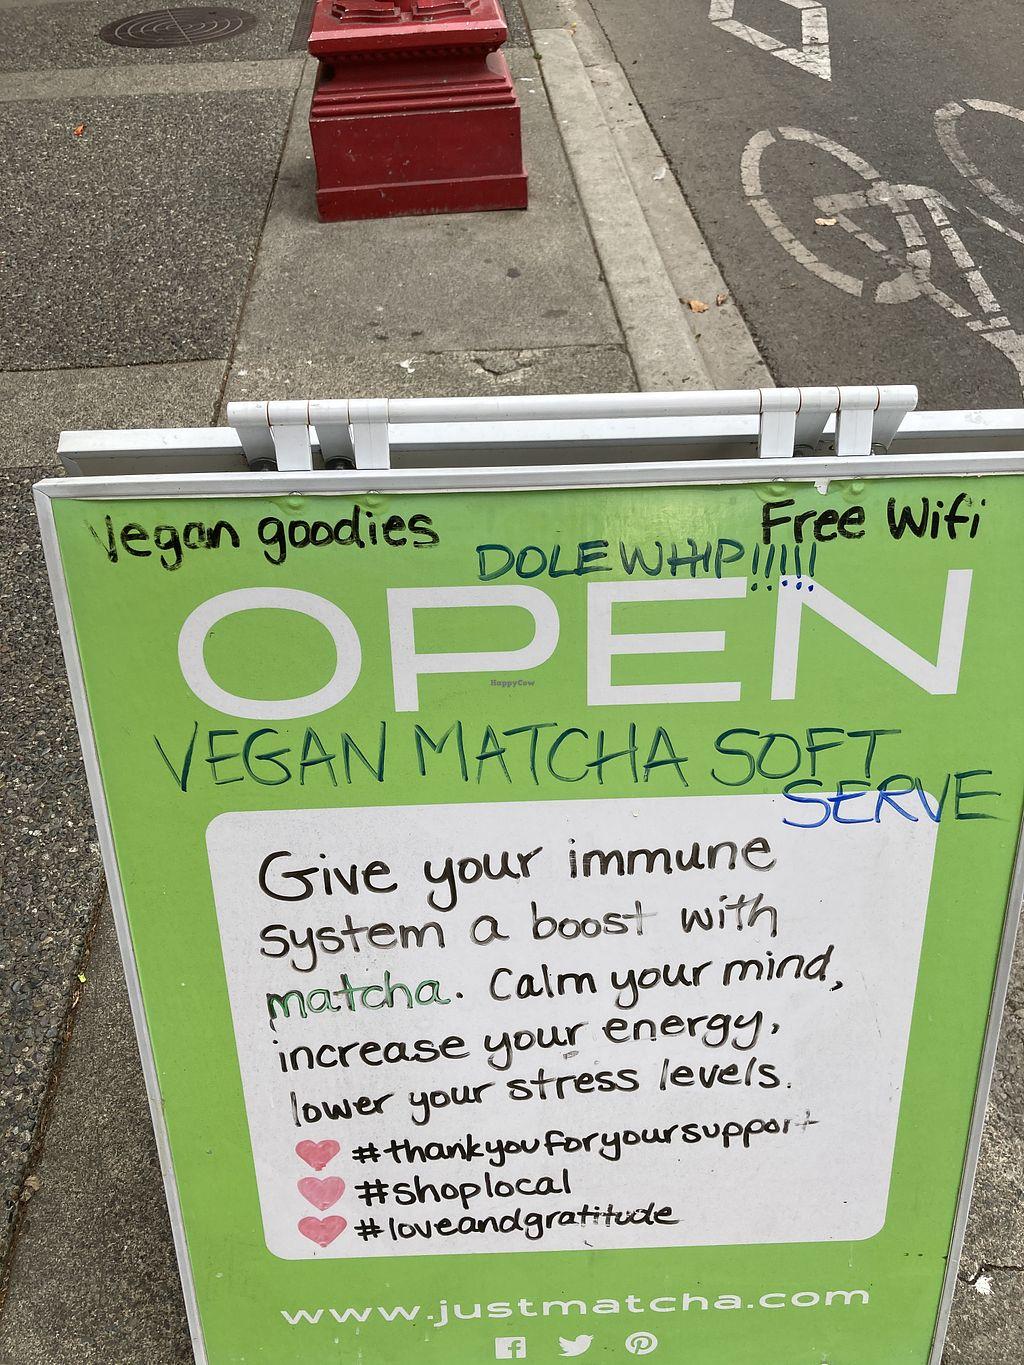 Vegan goodies
Free Wifi
DOLE WHIP!!!!!
OPEN
HappyCow
VEGAN MATCHA SOFT
SERVE
Give your immune
system a boost with
matcha. Calm your mind,
increase your energy,
lower your stress levels.
#thankyouforyoursupport
#shoplocal
#loveandgratitude
www.justmatcha.com